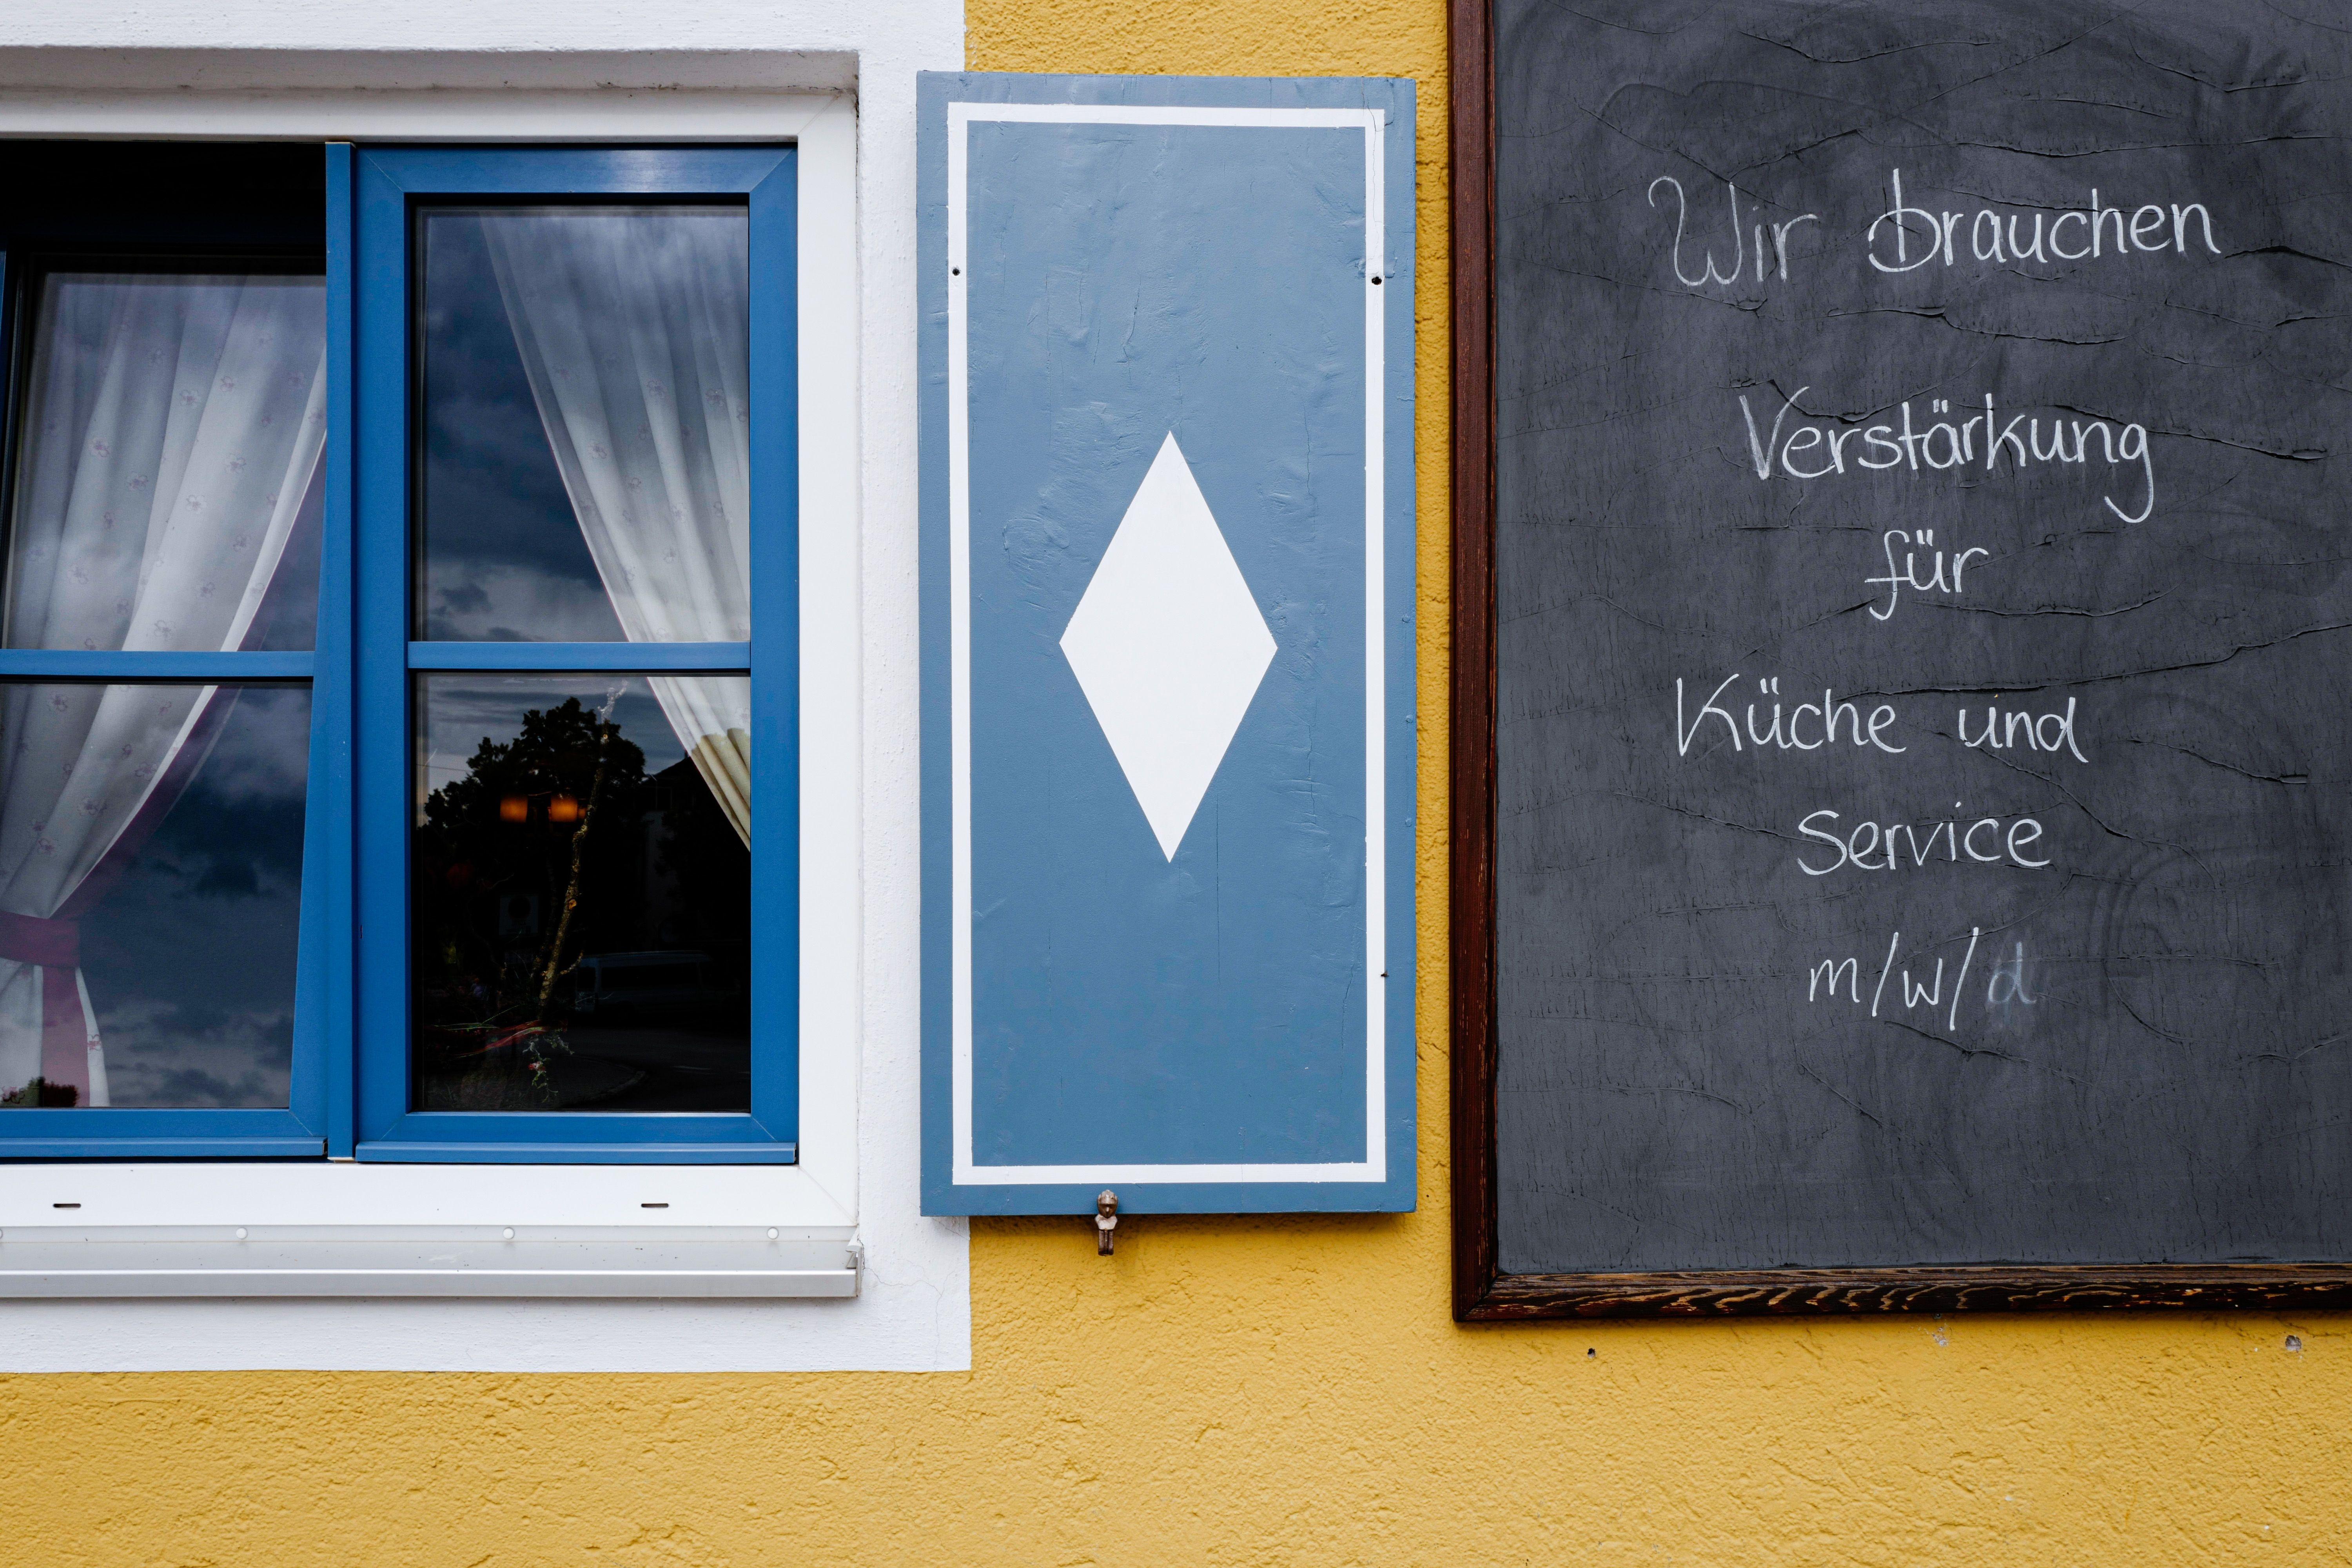 Wir brauchen
Verstärkung
für
Küche und
Service
m/w/d